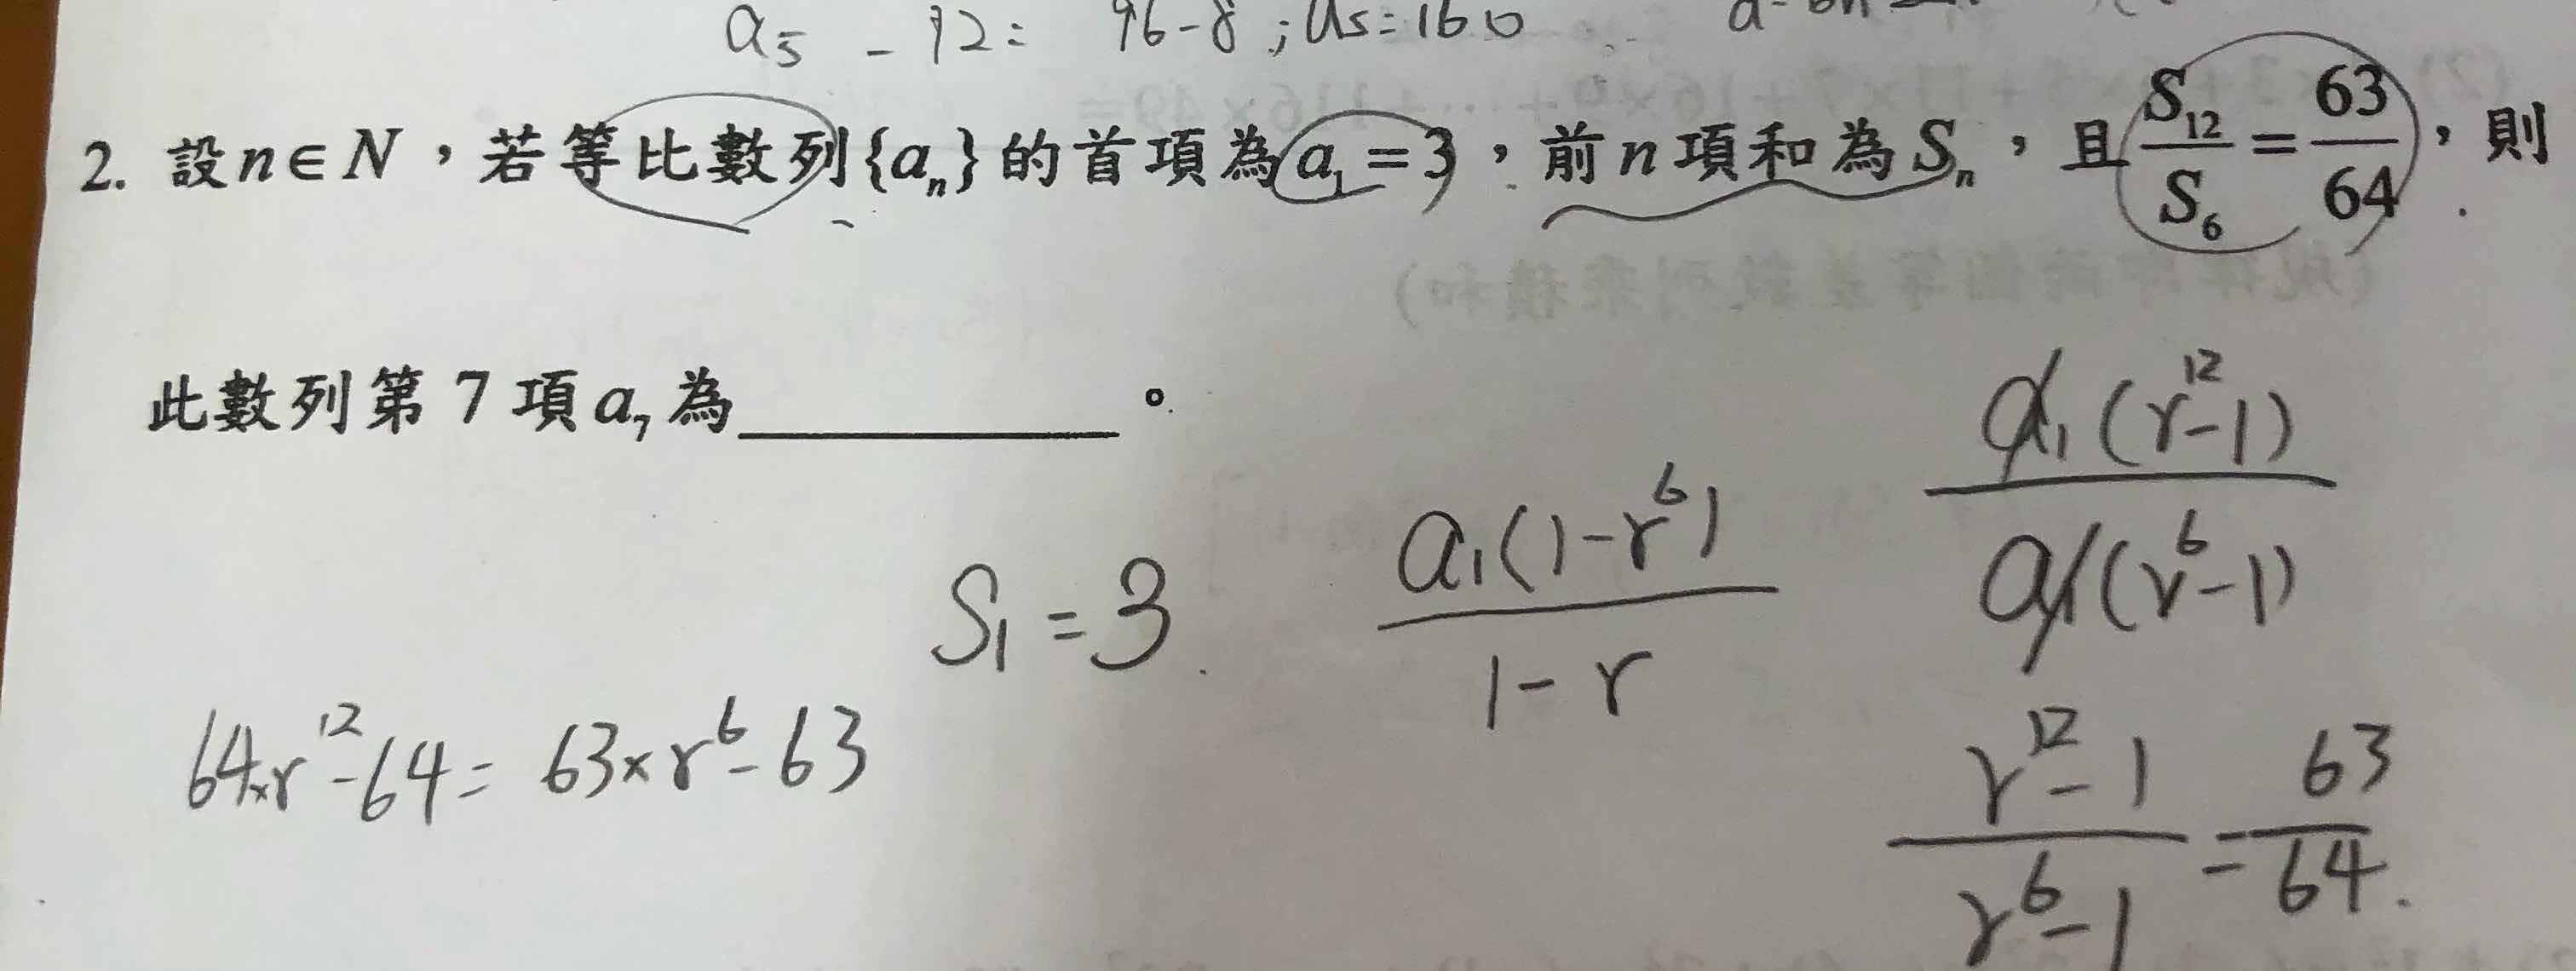 a₅ - 92 = 96-8 ; a₅=160
2. 設n∈N，若等比數列{aₙ}的首項為a₁=3，前n項和為Sₙ，且S₁₂/S₆=63/64，則
此數列第7項a₇為__________。
a₁(r¹²-1)/a₁(r⁶-1)
S₁=3 a₁(1-r⁶)/1-r
64×r¹²-64=63×r⁶-63
r¹²-1/r⁶-1=63/64.